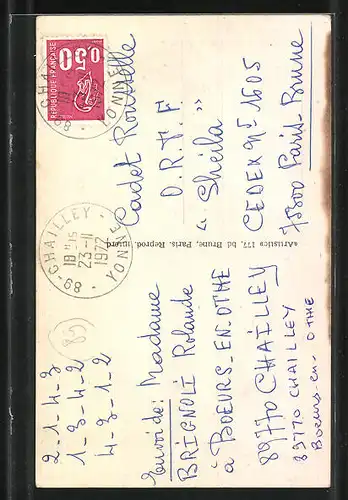 RÉPUBLIQUE FRANÇAISE
0,50
89-CHAILLEY-YONNE
18H15
23-11
1972
Cadet Rousselle
O.R.T.F
" Sheila "
CEDEX N° 1605
75300 Paris-Brune
«Artistic» 177, bd Brune, Paris. Reprod. interd.
Envoi de: Madame
BRIGNOLI Rolande
à BOEURS-EN-OTHE
89770 CHAILLEY
89770 CHAILLEY
Boeurs-en-OTHE
89
2-1-4-3
1-3-4-2
4-3-1-2